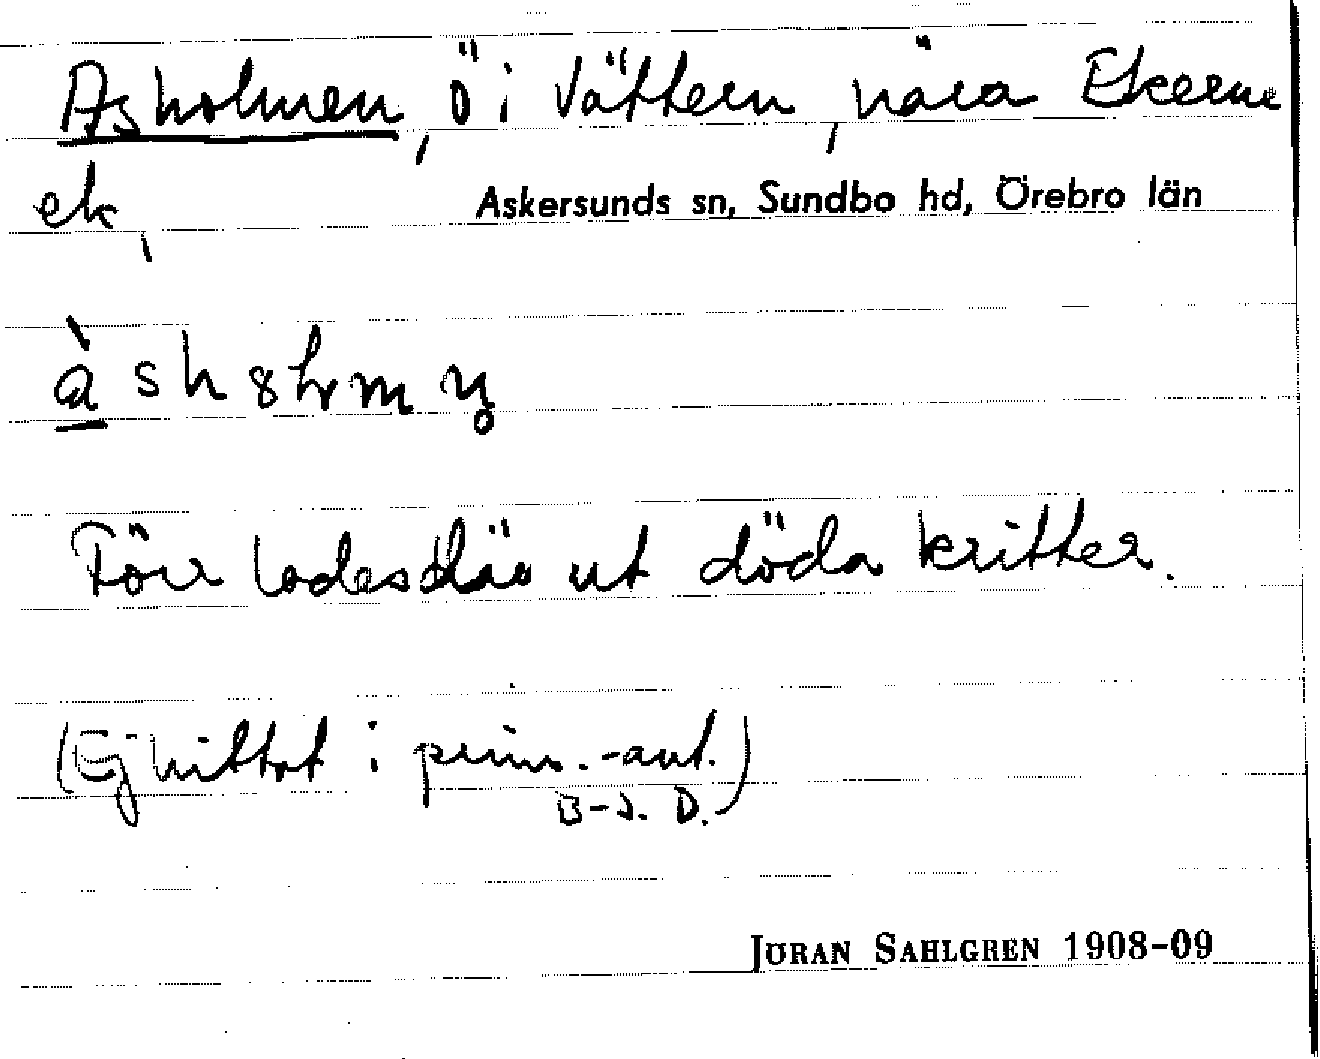 Asholmen, ö i Vättern, nära Ekerne
ek,
Askersunds sn, Sundbo hd, Örebro län
Förr lades där ut döda kritter.
(Ej hittat i prim.-ant.)
B-J. D.
JÖRAN SAHLGREN 1908-09